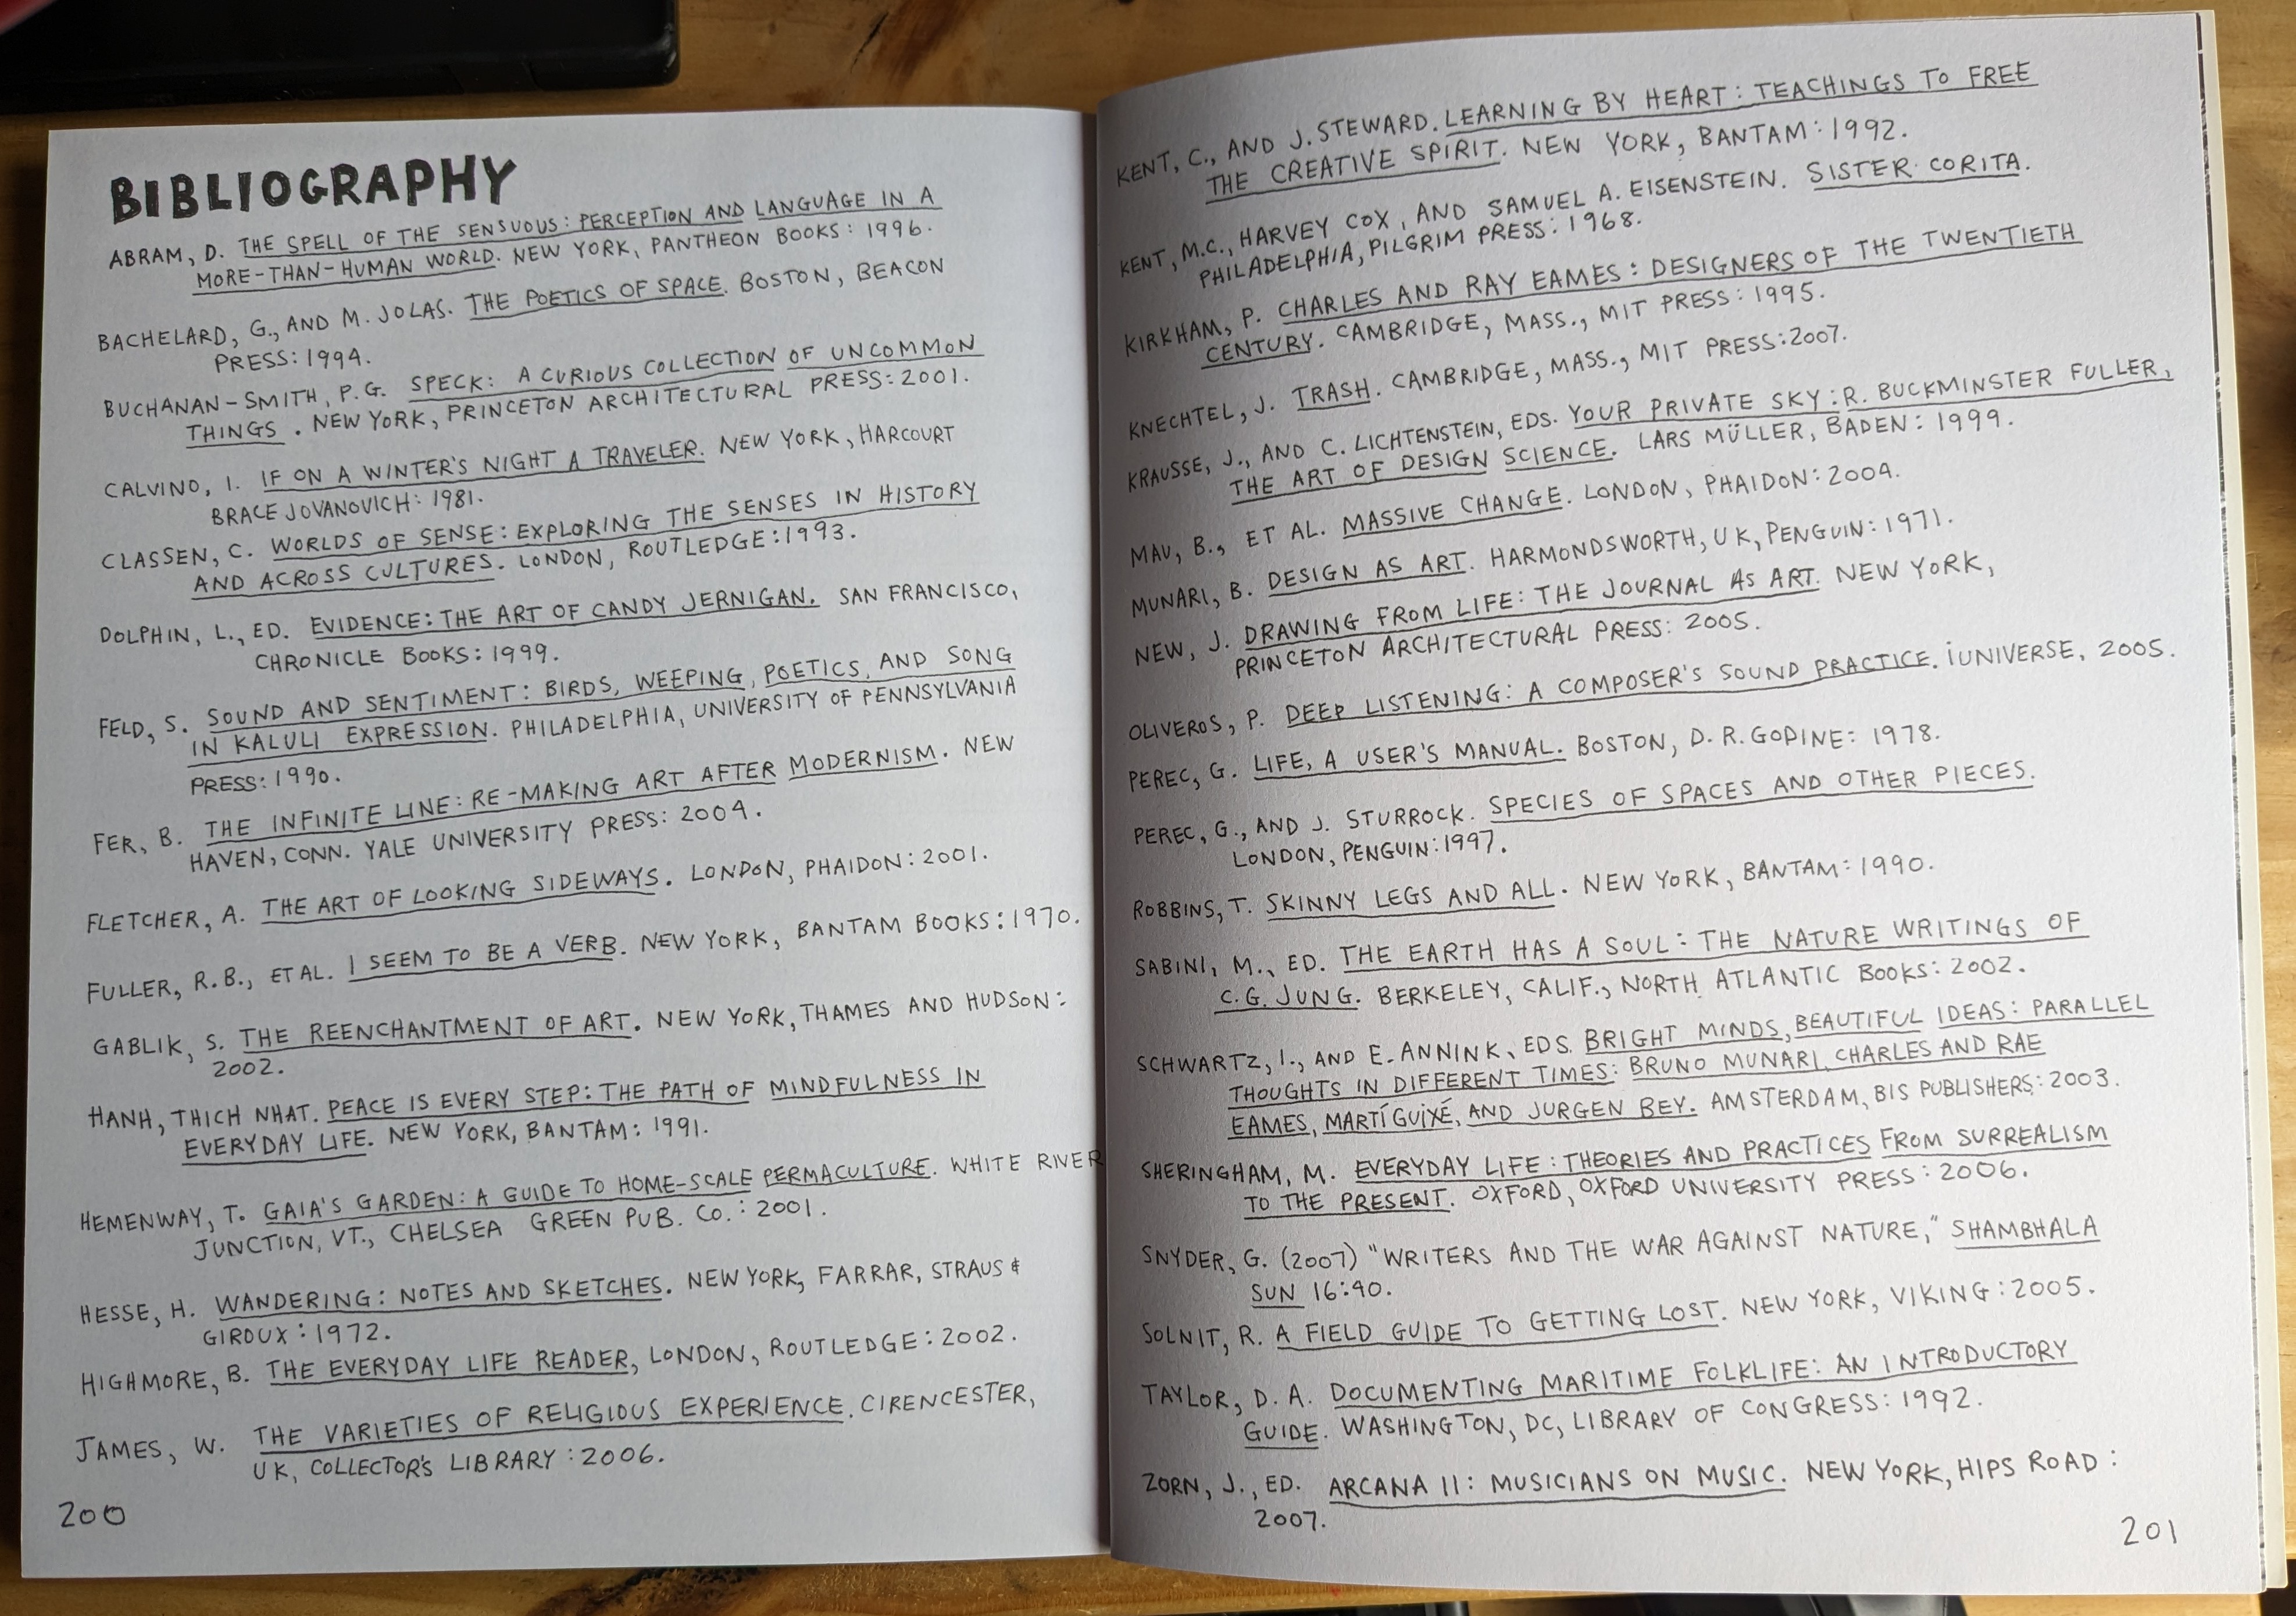 BIBLIOGRAPHY
ABRAM, D. THE SPELL OF THE SENSUOUS: PERCEPTION AND LANGUAGE IN A
MORE-THAN-HUMAN WORLD. NEW YORK, PANTHEON BOOKS: 1996.
BACHELARD, G., AND M. JOLAS. THE POETICS OF SPACE. BOSTON, BEACON
PRESS: 1994.
BUCHANAN-SMITH, P.G. SPECK: A CURIOUS COLLECTION OF UNCOMMON
THINGS. NEW YORK, PRINCETON ARCHITECTURAL PRESS: 2001.
CALVINO, I. IF ON A WINTER'S NIGHT A TRAVELER. NEW YORK, HARCOURT
BRACE JOVANOVICH: 1981.
CLASSEN, C. WORLDS OF SENSE: EXPLORING THE SENSES IN HISTORY
AND ACROSS CULTURES. LONDON, ROUTLEDGE: 1993.
DOLPHIN, L., ED. EVIDENCE: THE ART OF CANDY JERNIGAN. SAN FRANCISCO,
CHRONICLE BOOKS: 1999.
FELD, S. SOUND AND SENTIMENT: BIRDS, WEEPING, POETICS, AND SONG
IN KALULI EXPRESSION. PHILADELPHIA, UNIVERSITY OF PENNSYLVANIA
PRESS: 1990.
FER, B. THE INFINITE LINE: RE-MAKING ART AFTER MODERNISM. NEW
HAVEN, CONN. YALE UNIVERSITY PRESS: 2004.
FLETCHER, A. THE ART OF LOOKING SIDEWAYS. LONDON, PHAIDON: 2001.
FULLER, R.B., ET AL. I SEEM TO BE A VERB. NEW YORK, BANTAM BOOKS: 1970.
GABLIK, S. THE REENCHANTMENT OF ART. NEW YORK, THAMES AND HUDSON:
2002.
HANH, THICH NHAT. PEACE IS EVERY STEP: THE PATH OF MINDFULNESS IN
EVERYDAY LIFE. NEW YORK, BANTAM: 1991.
HEMENWAY, T. GAIA'S GARDEN: A GUIDE TO HOME-SCALE PERMACULTURE. WHITE RIVER
JUNCTION, VT., CHELSEA GREEN PUB. CO.: 2001.
HESSE, H. WANDERING: NOTES AND SKETCHES. NEW YORK, FARRAR, STRAUS &
GIROUX: 1972.
HIGHMORE, B. THE EVERYDAY LIFE READER, LONDON, ROUTLEDGE: 2002.
JAMES, W. THE VARIETIES OF RELIGIOUS EXPERIENCE. CIRENCESTER,
UK, COLLECTOR'S LIBRARY: 2006.
200
KENT, C., AND J. STEWARD. LEARNING BY HEART: TEACHINGS TO FREE
THE CREATIVE SPIRIT. NEW YORK, BANTAM: 1992.
KENT, M.C., HARVEY COX, AND SAMUEL A. EISENSTEIN. SISTER CORITA.
PHILADELPHIA, PILGRIM PRESS: 1968.
KIRKHAM, P. CHARLES AND RAY EAMES: DESIGNERS OF THE TWENTIETH
CENTURY. CAMBRIDGE, MASS., MIT PRESS: 1995.
KNECHTEL, J. TRASH. CAMBRIDGE, MASS., MIT PRESS: 2007.
KRAUSSE, J., AND C. LICHTENSTEIN, EDS. YOUR PRIVATE SKY: R. BUCKMINSTER FULLER,
THE ART OF DESIGN SCIENCE. LARS MÜLLER, BADEN: 1999.
MAU, B., ET AL. MASSIVE CHANGE. LONDON, PHAIDON: 2004.
MUNARI, B. DESIGN AS ART. HARMONDSWORTH, UK, PENGUIN: 1971.
NEW, J. DRAWING FROM LIFE: THE JOURNAL AS ART. NEW YORK,
PRINCETON ARCHITECTURAL PRESS: 2005.
OLIVEROS, P. DEEP LISTENING: A COMPOSER'S SOUND PRACTICE. iUNIVERSE, 2005.
PEREC, G. LIFE, A USER'S MANUAL. BOSTON, D.R. GODINE: 1978.
PEREC, G., AND J. STURROCK. SPECIES OF SPACES AND OTHER PIECES.
LONDON, PENGUIN: 1997.
ROBBINS, T. SKINNY LEGS AND ALL. NEW YORK, BANTAM: 1990.
SABINI, M., ED. THE EARTH HAS A SOUL: THE NATURE WRITINGS OF
C.G. JUNG. BERKELEY, CALIF., NORTH ATLANTIC BOOKS: 2002.
SCHWARTZ, I., AND E. ANNINK, EDS. BRIGHT MINDS, BEAUTIFUL IDEAS: PARALLEL
THOUGHTS IN DIFFERENT TIMES: BRUNO MUNARI, CHARLES AND RAE
EAMES, MARTÍ GUIXÉ, AND JURGEN BEY. AMSTERDAM, BIS PUBLISHERS: 2003.
SHERINGHAM, M. EVERYDAY LIFE: THEORIES AND PRACTICES FROM SURREALISM
TO THE PRESENT. OXFORD, OXFORD UNIVERSITY PRESS: 2006.
SNYDER, G. (2007) "WRITERS AND THE WAR AGAINST NATURE," SHAMBHALA
SUN 16:40.
SOLNIT, R. A FIELD GUIDE TO GETTING LOST. NEW YORK, VIKING: 2005.
TAYLOR, D. A. DOCUMENTING MARITIME FOLKLIFE: AN INTRODUCTORY
GUIDE. WASHINGTON, DC, LIBRARY OF CONGRESS: 1992.
ZORN, J., ED. ARCANA II: MUSICIANS ON MUSIC. NEW YORK, HIPS ROAD:
2007.
201